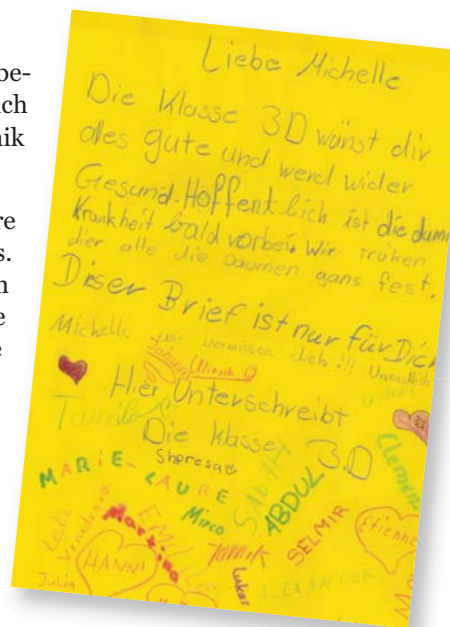 be-
ich
nik
re
s.
n
e
e
Liebe Michelle
Die Klasse 3D wünst dir
alles gute und werd wider
Gesund. Hoffentlich ist die dumm
Krankheit bald vorbei. Wir trüken
dier alle die Daumen gans fest.
Diser Brief ist nur für Dich
Michelle wir vermissen dich!!! Unendlich
Hier Unterschreibt
Die Klasse 3D
Shpresa
MARIE-LAURE
SABAT
ABDUL
Clemens
Mirco
EMIL
Marxina
Jannik
SELMIR
Etienne
HANNI
Lukas
ALEXANDER
Julia